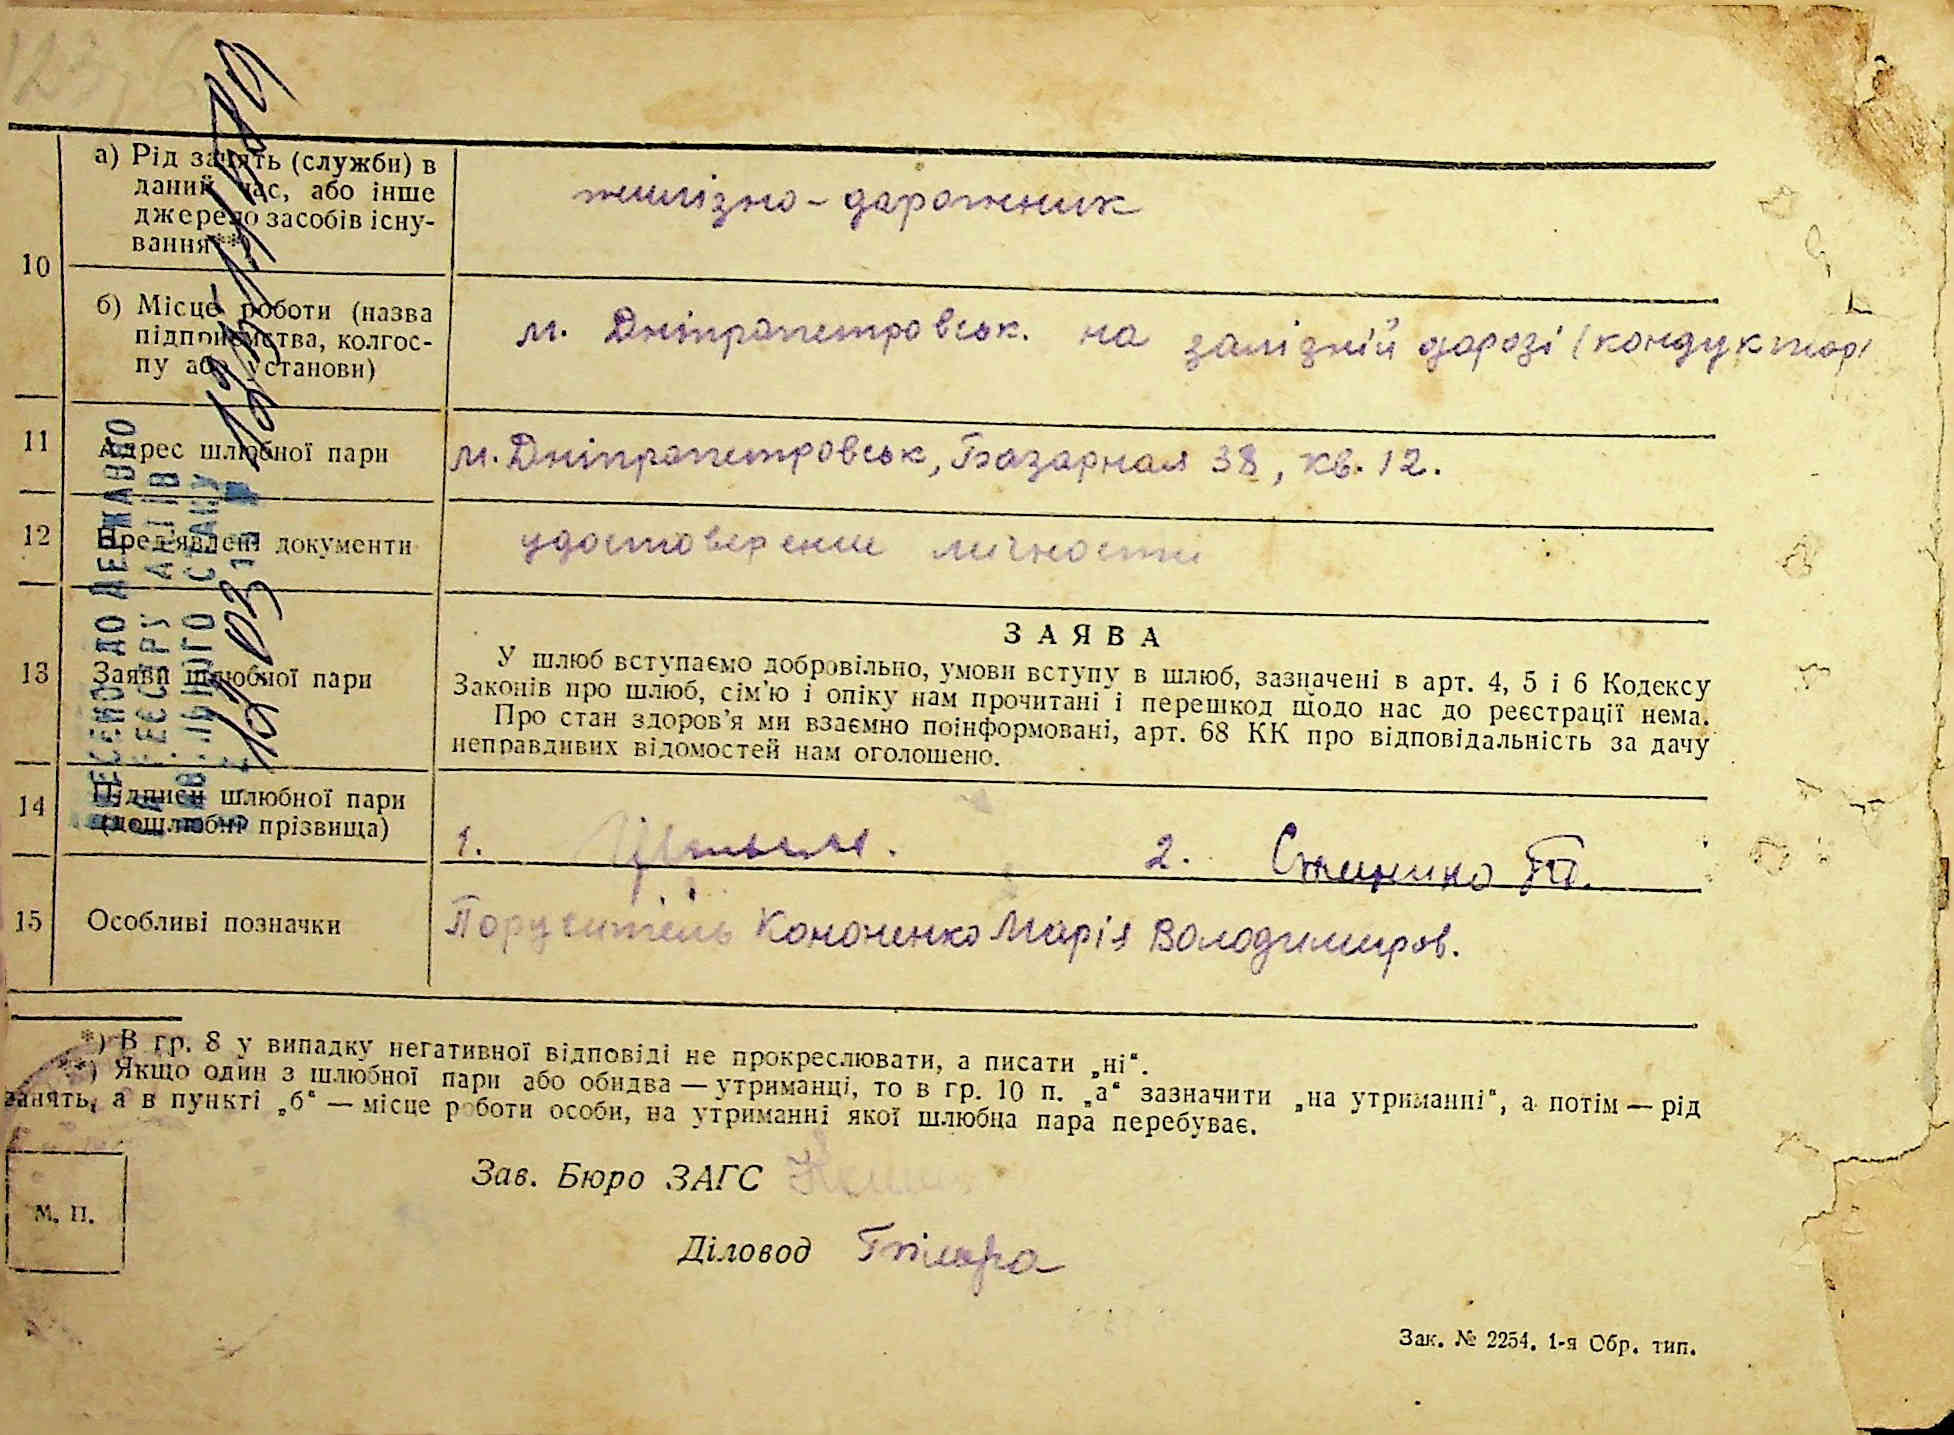 10
а) Рід занять (служби) в
даний час, або інше
джерело засобів існу-
вання**)
жилізно-дорожник
б) Місце роботи (назва
підприємства, колгос-
пу або установи)
м. Дніпропетровськ. на залізній дорозі (кондуктор)
11
Адрес шлюбної пари
м. Дніпропетровськ, Базарная 38, кв. 12.
12
Пред'явлені документи
удостоверение личности
13
Заяви шлюбної пари
ЗАЯВА
У шлюб вступаємо добровільно, умови вступу в шлюб, зазначені в арт. 4, 5 і 6 Кодексу
Законів про шлюб, сім'ю і опіку нам прочитані і перешкод щодо нас до реєстрації нема.
Про стан здоров'я ми взаємно поінформовані, арт. 68 КК про відповідальність за дачу
неправдивих відомостей нам оголошено.
14
Підписи шлюбної пари
(дошлюбні прізвища)
1.
2.
15
Особливі позначки
Поручитель Кононенко Марія Володимиров.
*) В гр. 8 у випадку негативної відповіді не прокреслювати, а писати „ні“.
**) Якщо один з шлюбної пари або обидва — утриманці, то в гр. 10 п. „а“ зазначити „на утриманні“, а потім — рід
занять, а в пункті „б“ — місце роботи особи, на утриманні якої шлюбна пара перебуває.
Зав. Бюро ЗАГС
М. П.
Діловод
Зак. № 2254. 1-я Обр. тип.
ВНЕСЕНО ДО ДЕРЖАВНОГО
РЕЄСТРУ АКТІВ
ЦИВІЛЬНОГО СТАНУ